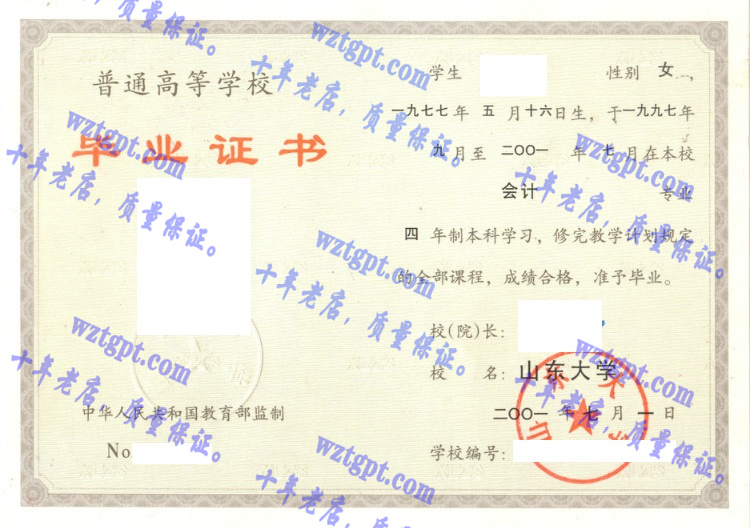 普通高等学校
毕业证书
中华人民共和国教育部监制
No.
学生 性别 女 ,
一九七七 年 五 月十六日生，于一九九七年
九 月至 二〇〇一 年 七 月在本校
会计 专业
四 年制本科学习，修完教学计划规定
的全部课程，成绩合格，准予毕业。
校(院)长:
校 名: 山东大学
二〇〇一 年 七 月 一 日
学校编号:
wztgpt.com
十年老店，质量保证。
wztgpt.com
十年老店，质量保证。
wztgpt.com
十年老店，质量保证。
wztgpt.com
十年老店，质量保证。
wztgpt.com
十年老店，质量保证。
wztgpt.com
十年老店，质量保证。
wztgpt.com
十年老店，质量保证。